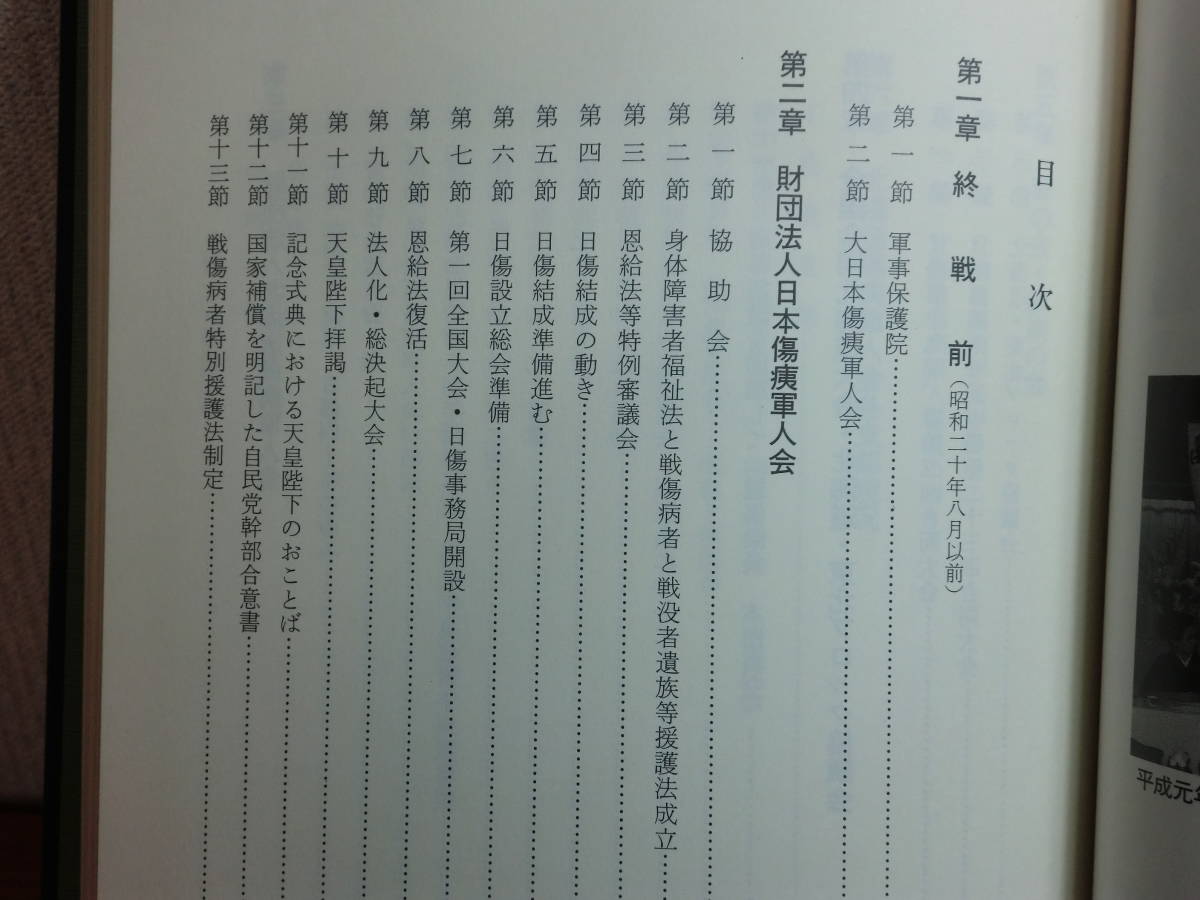 目次
第一章 終戦前（昭和二十年八月以前）
第一節 軍事保護院……………………
第二節 大日本傷痍軍人会……………………
第二章 財団法人日本傷痍軍人会
第一節 協助会……………………
第二節 身体障害者福祉法と戦傷病者と戦没者遺族等援護法成立……
第三節 恩給法等特例審議会……………………
第四節 日傷結成の動き……………………
第五節 日傷結成準備進む……………………
第六節 日傷設立総会準備……………………
第七節 第一回全国大会・日傷事務局開設……………………
第八節 恩給法復活……………………
第九節 法人化・総決起大会……………………
第十節 天皇陛下拝謁……………………
第十一節 記念式典における天皇陛下のおことば……………………
第十二節 国家補償を明記した自民党幹部合意書……………………
第十三節 戦傷病者特別援護法制定……………………
平成元年